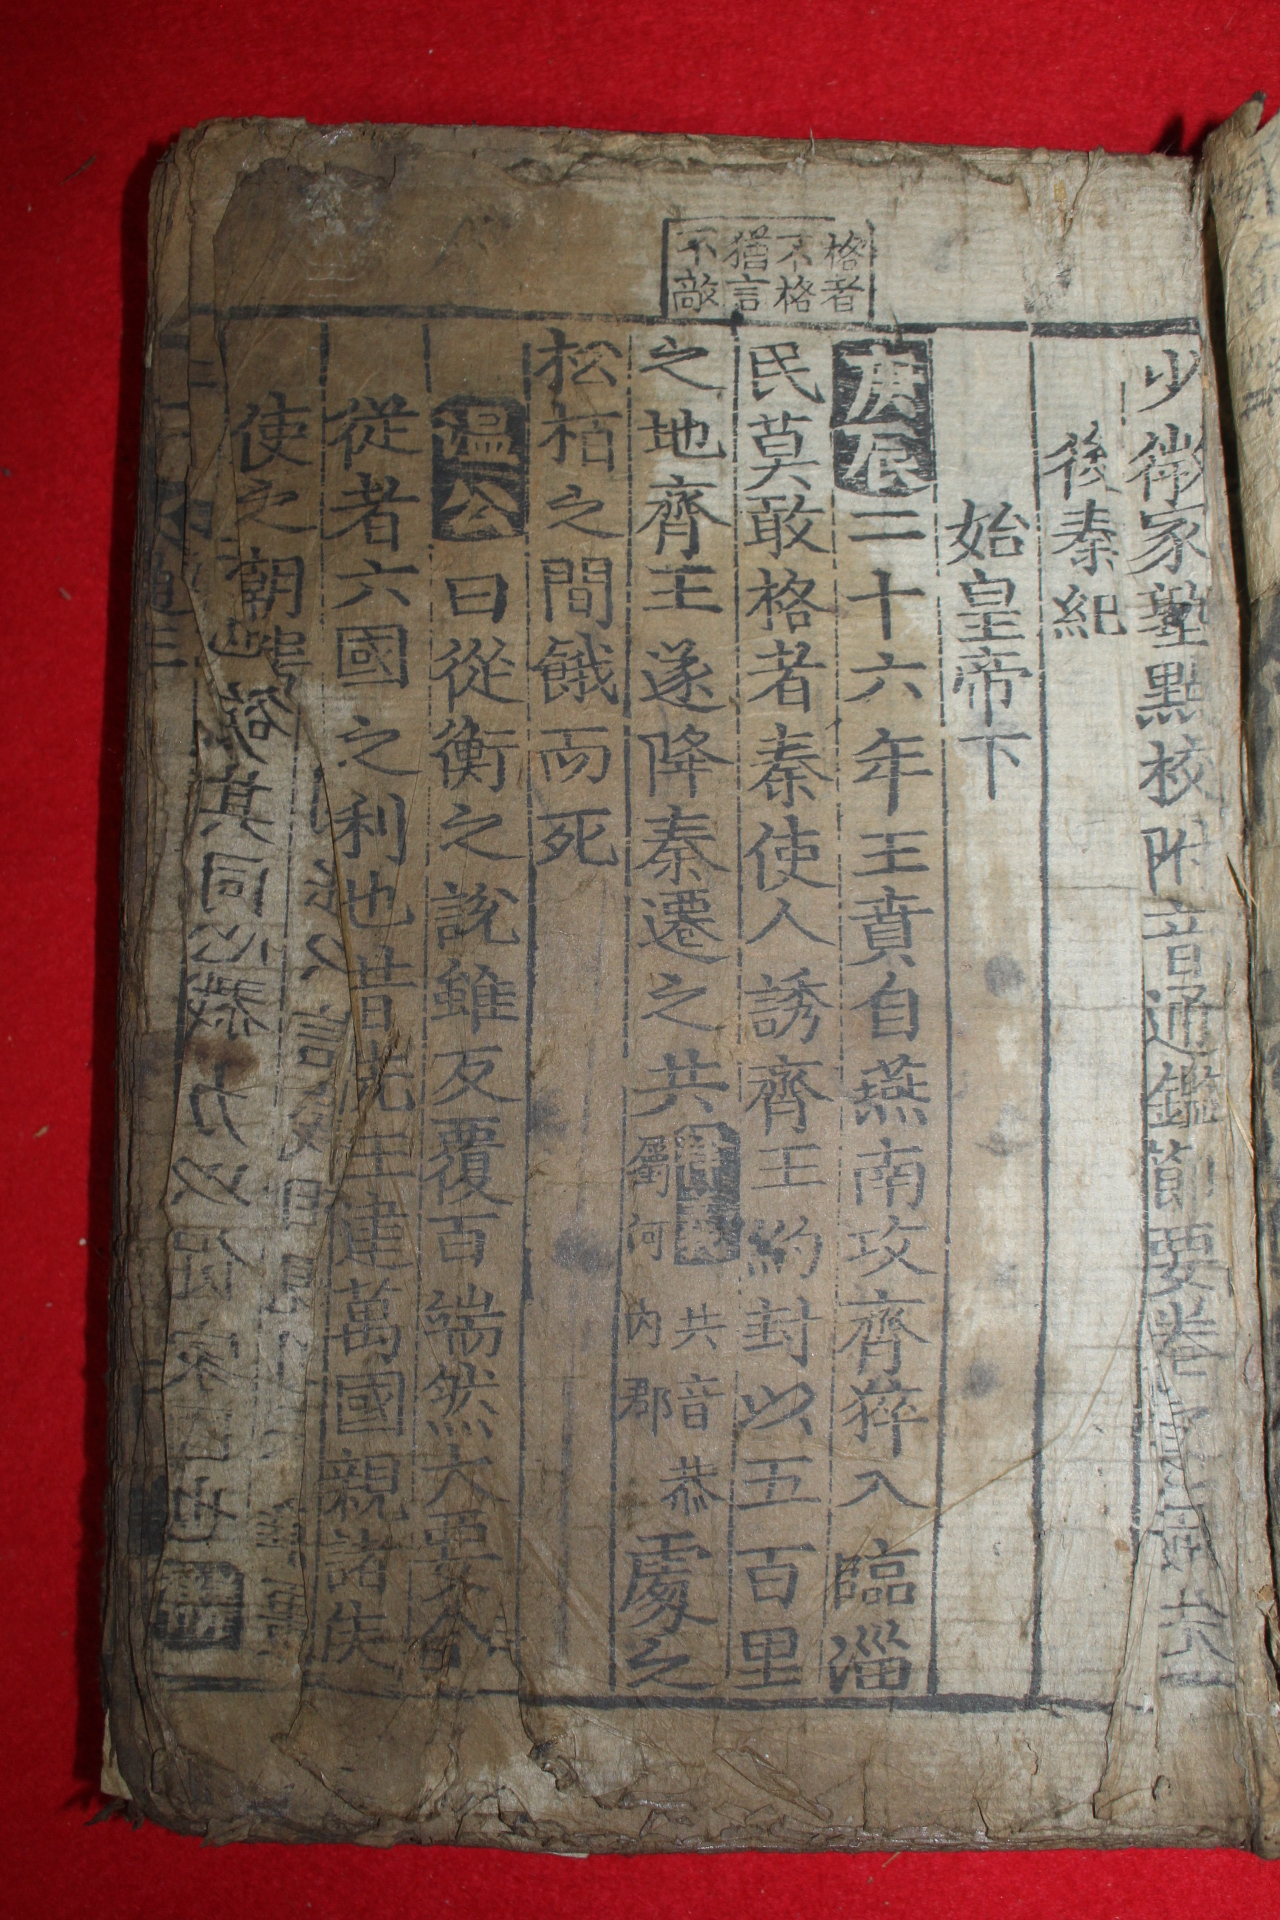 格者
不格
猶言
不敵
少微家塾點校附音通鑑節要卷之 六
後秦紀
始皇帝下
庚辰二十六年王賁自燕南攻齊猝入臨淄
民莫敢格者秦使人誘齊王約封以五百里
之地齊王遂降秦遷之共
共音恭
屬河內郡
處之
松栢之間餓而死
溫公曰從衡之說雖反覆百端然大要合
從者六國之利也昔先王建萬國親諸侯
使之朝聘
欲其同心戮力以保家國也